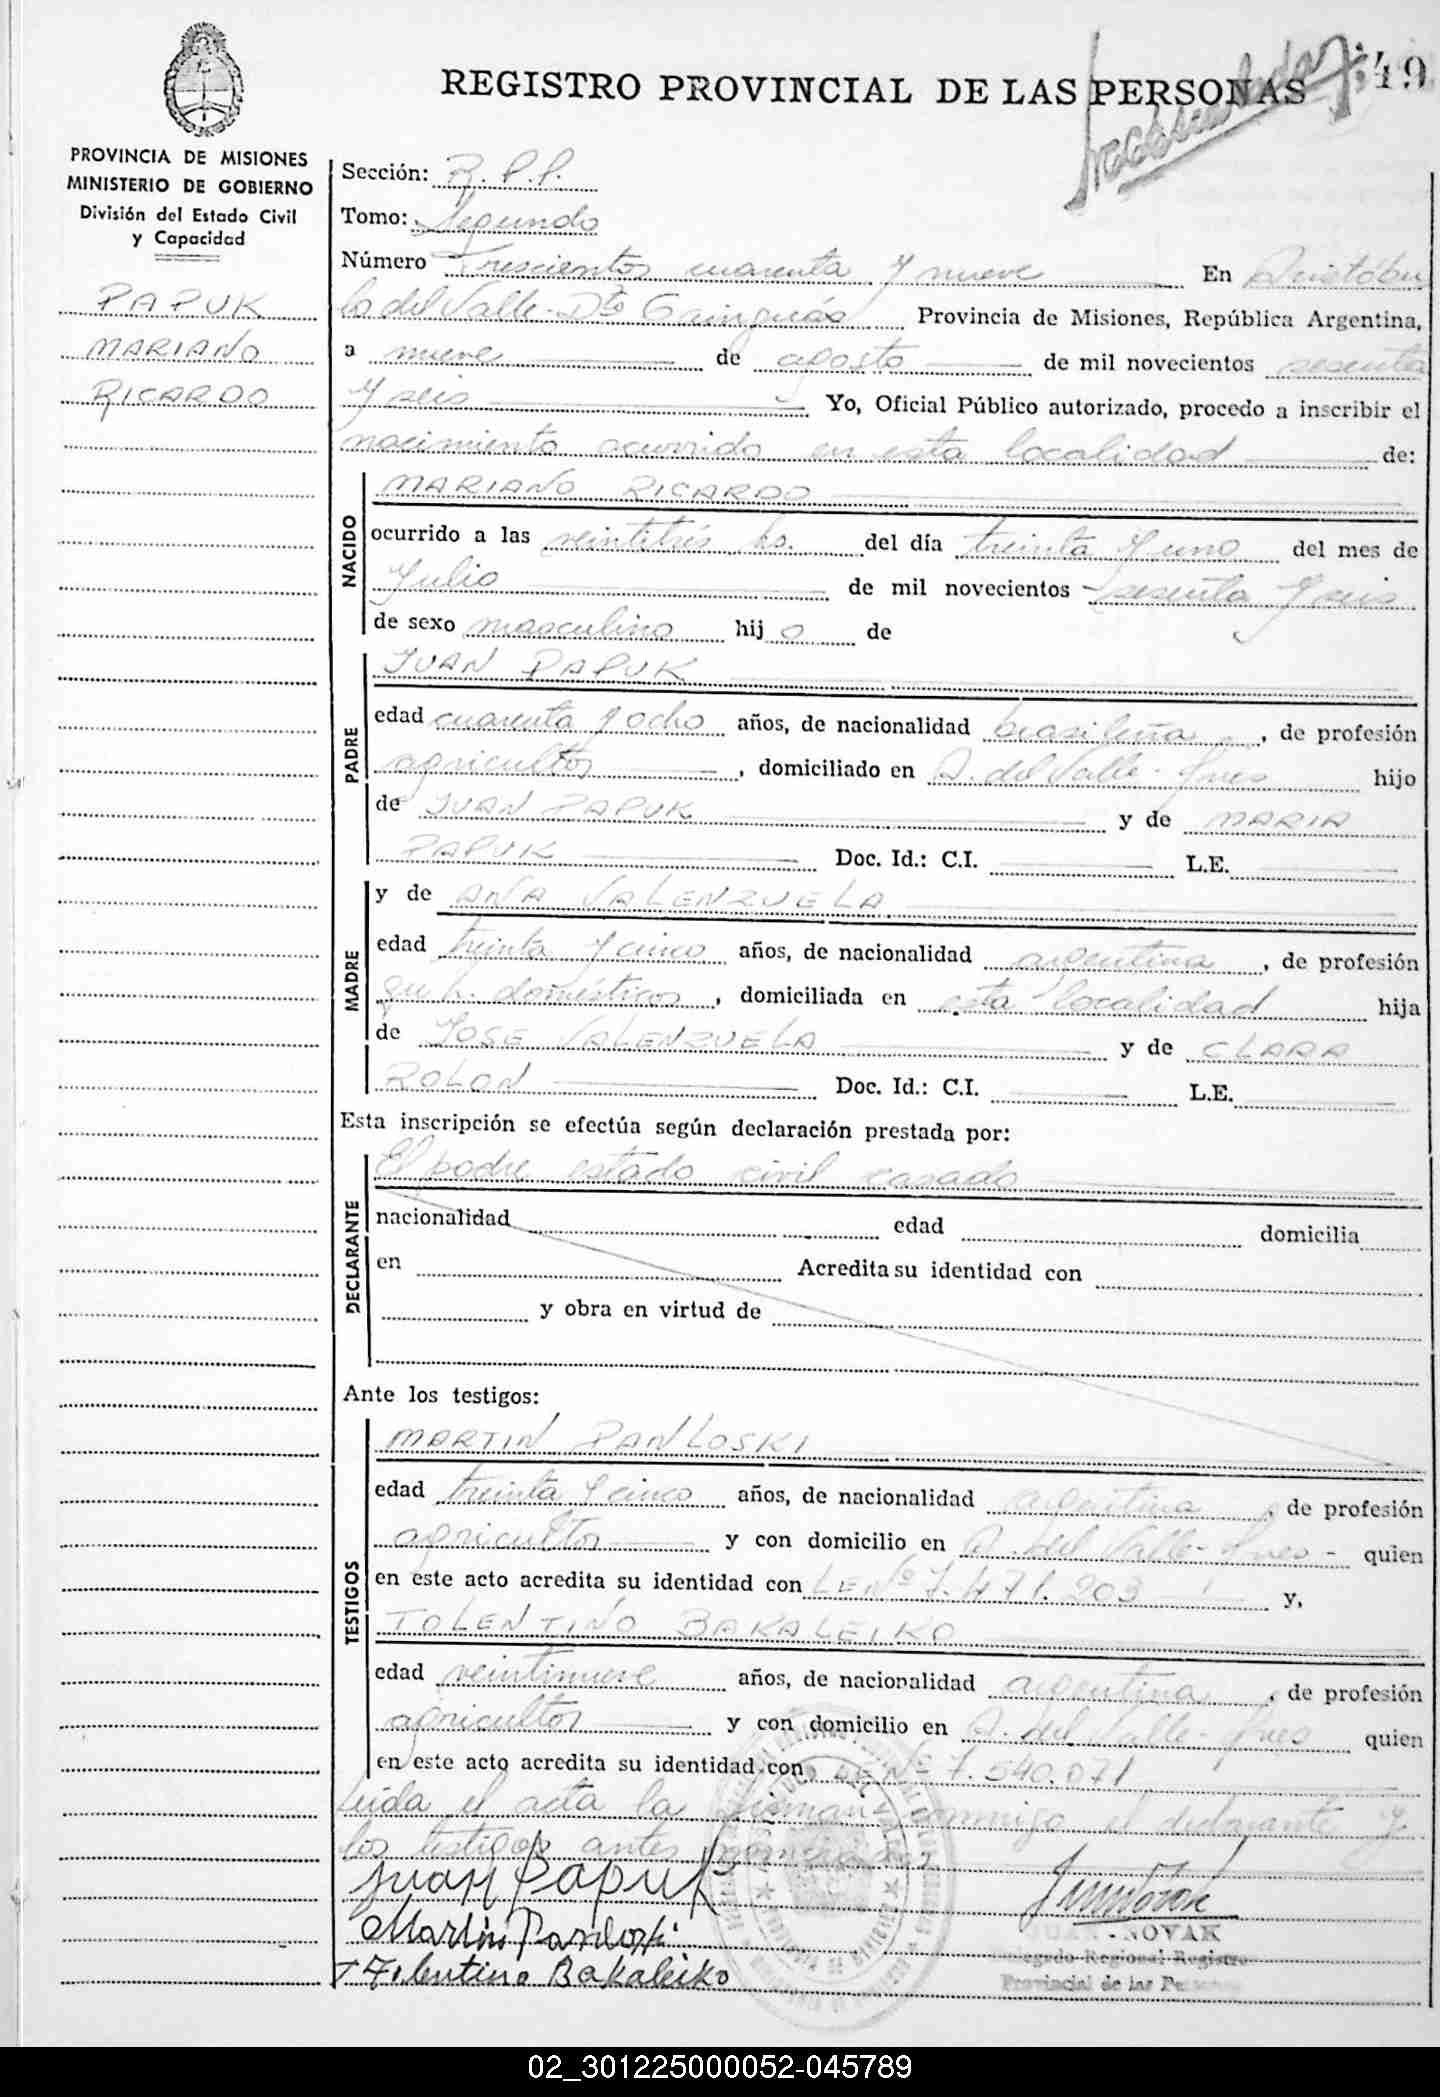 REGISTRO PROVINCIAL DE LAS PERSONAS
49
PROVINCIA DE MISIONES
MINISTERIO DE GOBIERNO
División del Estado Civil
y Capacidad
PAPUK
MARIANO
RICARDO
Sección: R. P. P.
Tomo: Segundo
Número Trescientos cuarenta y nueve En Aristóbu
lo del Valle - Dto Cainguás Provincia de Misiones, República Argentina,
a nueve de agosto de mil novecientos sesenta
y seis Yo, Oficial Público autorizado, procedo a inscribir el
nacimiento ocurrido en esta localidad de:
NACIDO
MARIANO RICARDO
ocurrido a las veintitrés hs. del día treinta y uno del mes de
Julio de mil novecientos sesenta y seis
de sexo masculino hij o de
PADRE
JUAN PAPUK
edad cuarenta y ocho años, de nacionalidad brasileña, de profesión
agricultor, domiciliado en A. del Valle - Mnes hijo
de JUAN PAPUK y de MARIA
PAPUK Doc. Id.: C.I. L.E.
MADRE
y de ANA VALENZUELA
edad treinta y cinco años, de nacionalidad argentina, de profesión
queh. domésticos, domiciliada en esta localidad hija
de JOSE VALENZUELA y de CLARA
ROLON Doc. Id.: C.I. L.E.
Esta inscripción se efectúa según declaración prestada por:
DECLARANTE
El padre estado civil casado
nacionalidad edad domicilia
en Acredita su identidad con
y obra en virtud de
Ante los testigos:
TESTIGOS
MARTIN PANLOSKI
edad treinta y cinco años, de nacionalidad argentina, de profesión
agricultor y con domicilio en A. del Valle - Mnes - quien
en este acto acredita su identidad con LE Nº 7.471.203 y,
TOLENTINO BAKALEIKO
edad veintinueve años, de nacionalidad argentina, de profesión
agricultor y con domicilio en A. del Valle - Mnes quien
en este acto acredita su identidad con LE Nº 7.540.071
Leida el acta la firman conmigo el declarante y
los testigos antes
Juan Papuk
Martin Panloski
Tolentino Bakaleiko
JUAN NOVAK
Delegado Regional Registro
Provincial de las Personas
02_301225000052-045789